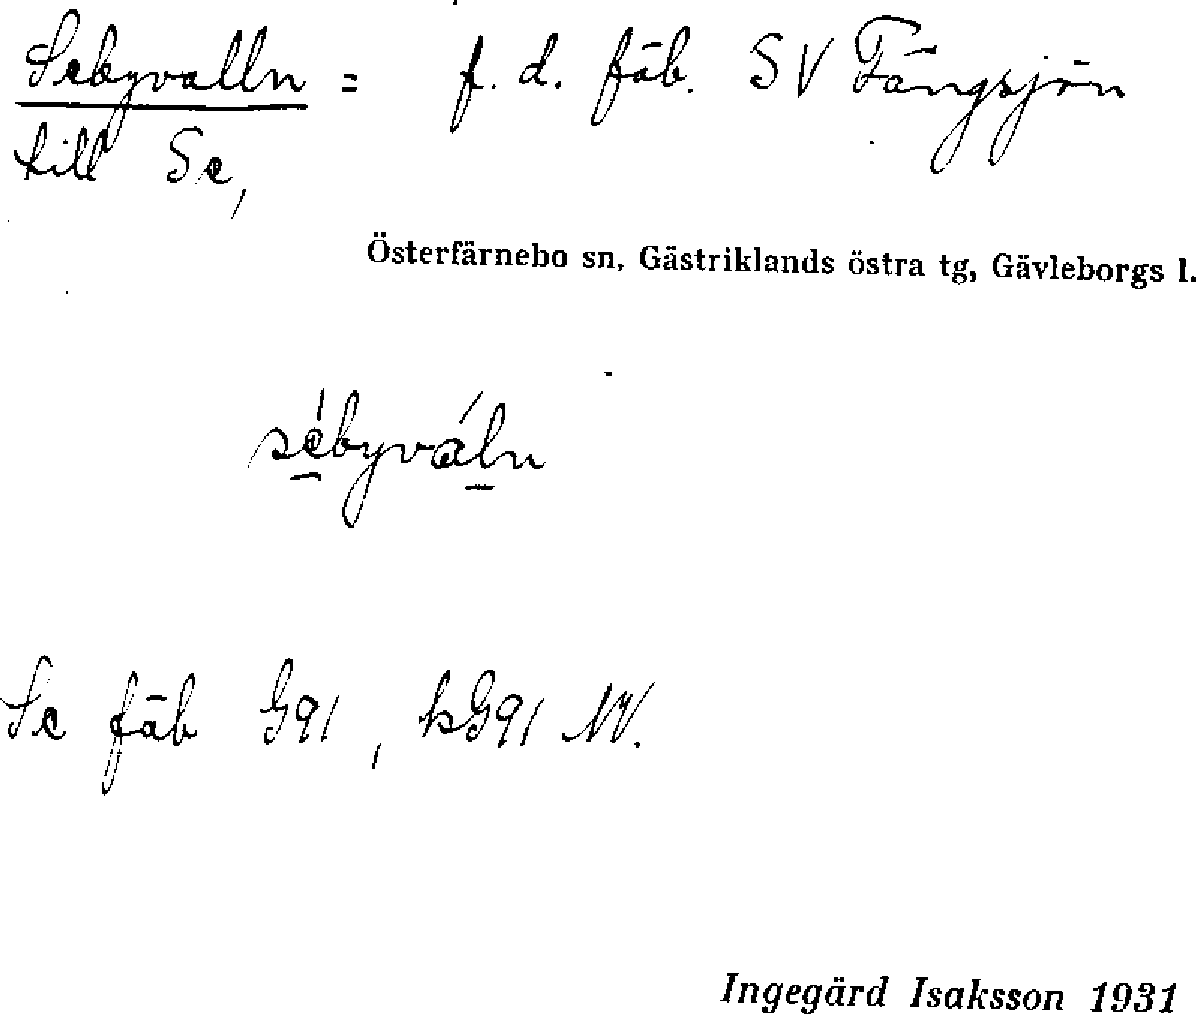 Sebyvalln = f. d. fäb. SV Fängsjön
till Se,
Österfärnebo sn, Gästriklands östra tg, Gävleborgs l.
sébyváln
Se fäb G91, kG91 NV.
Ingegärd Isaksson 1931